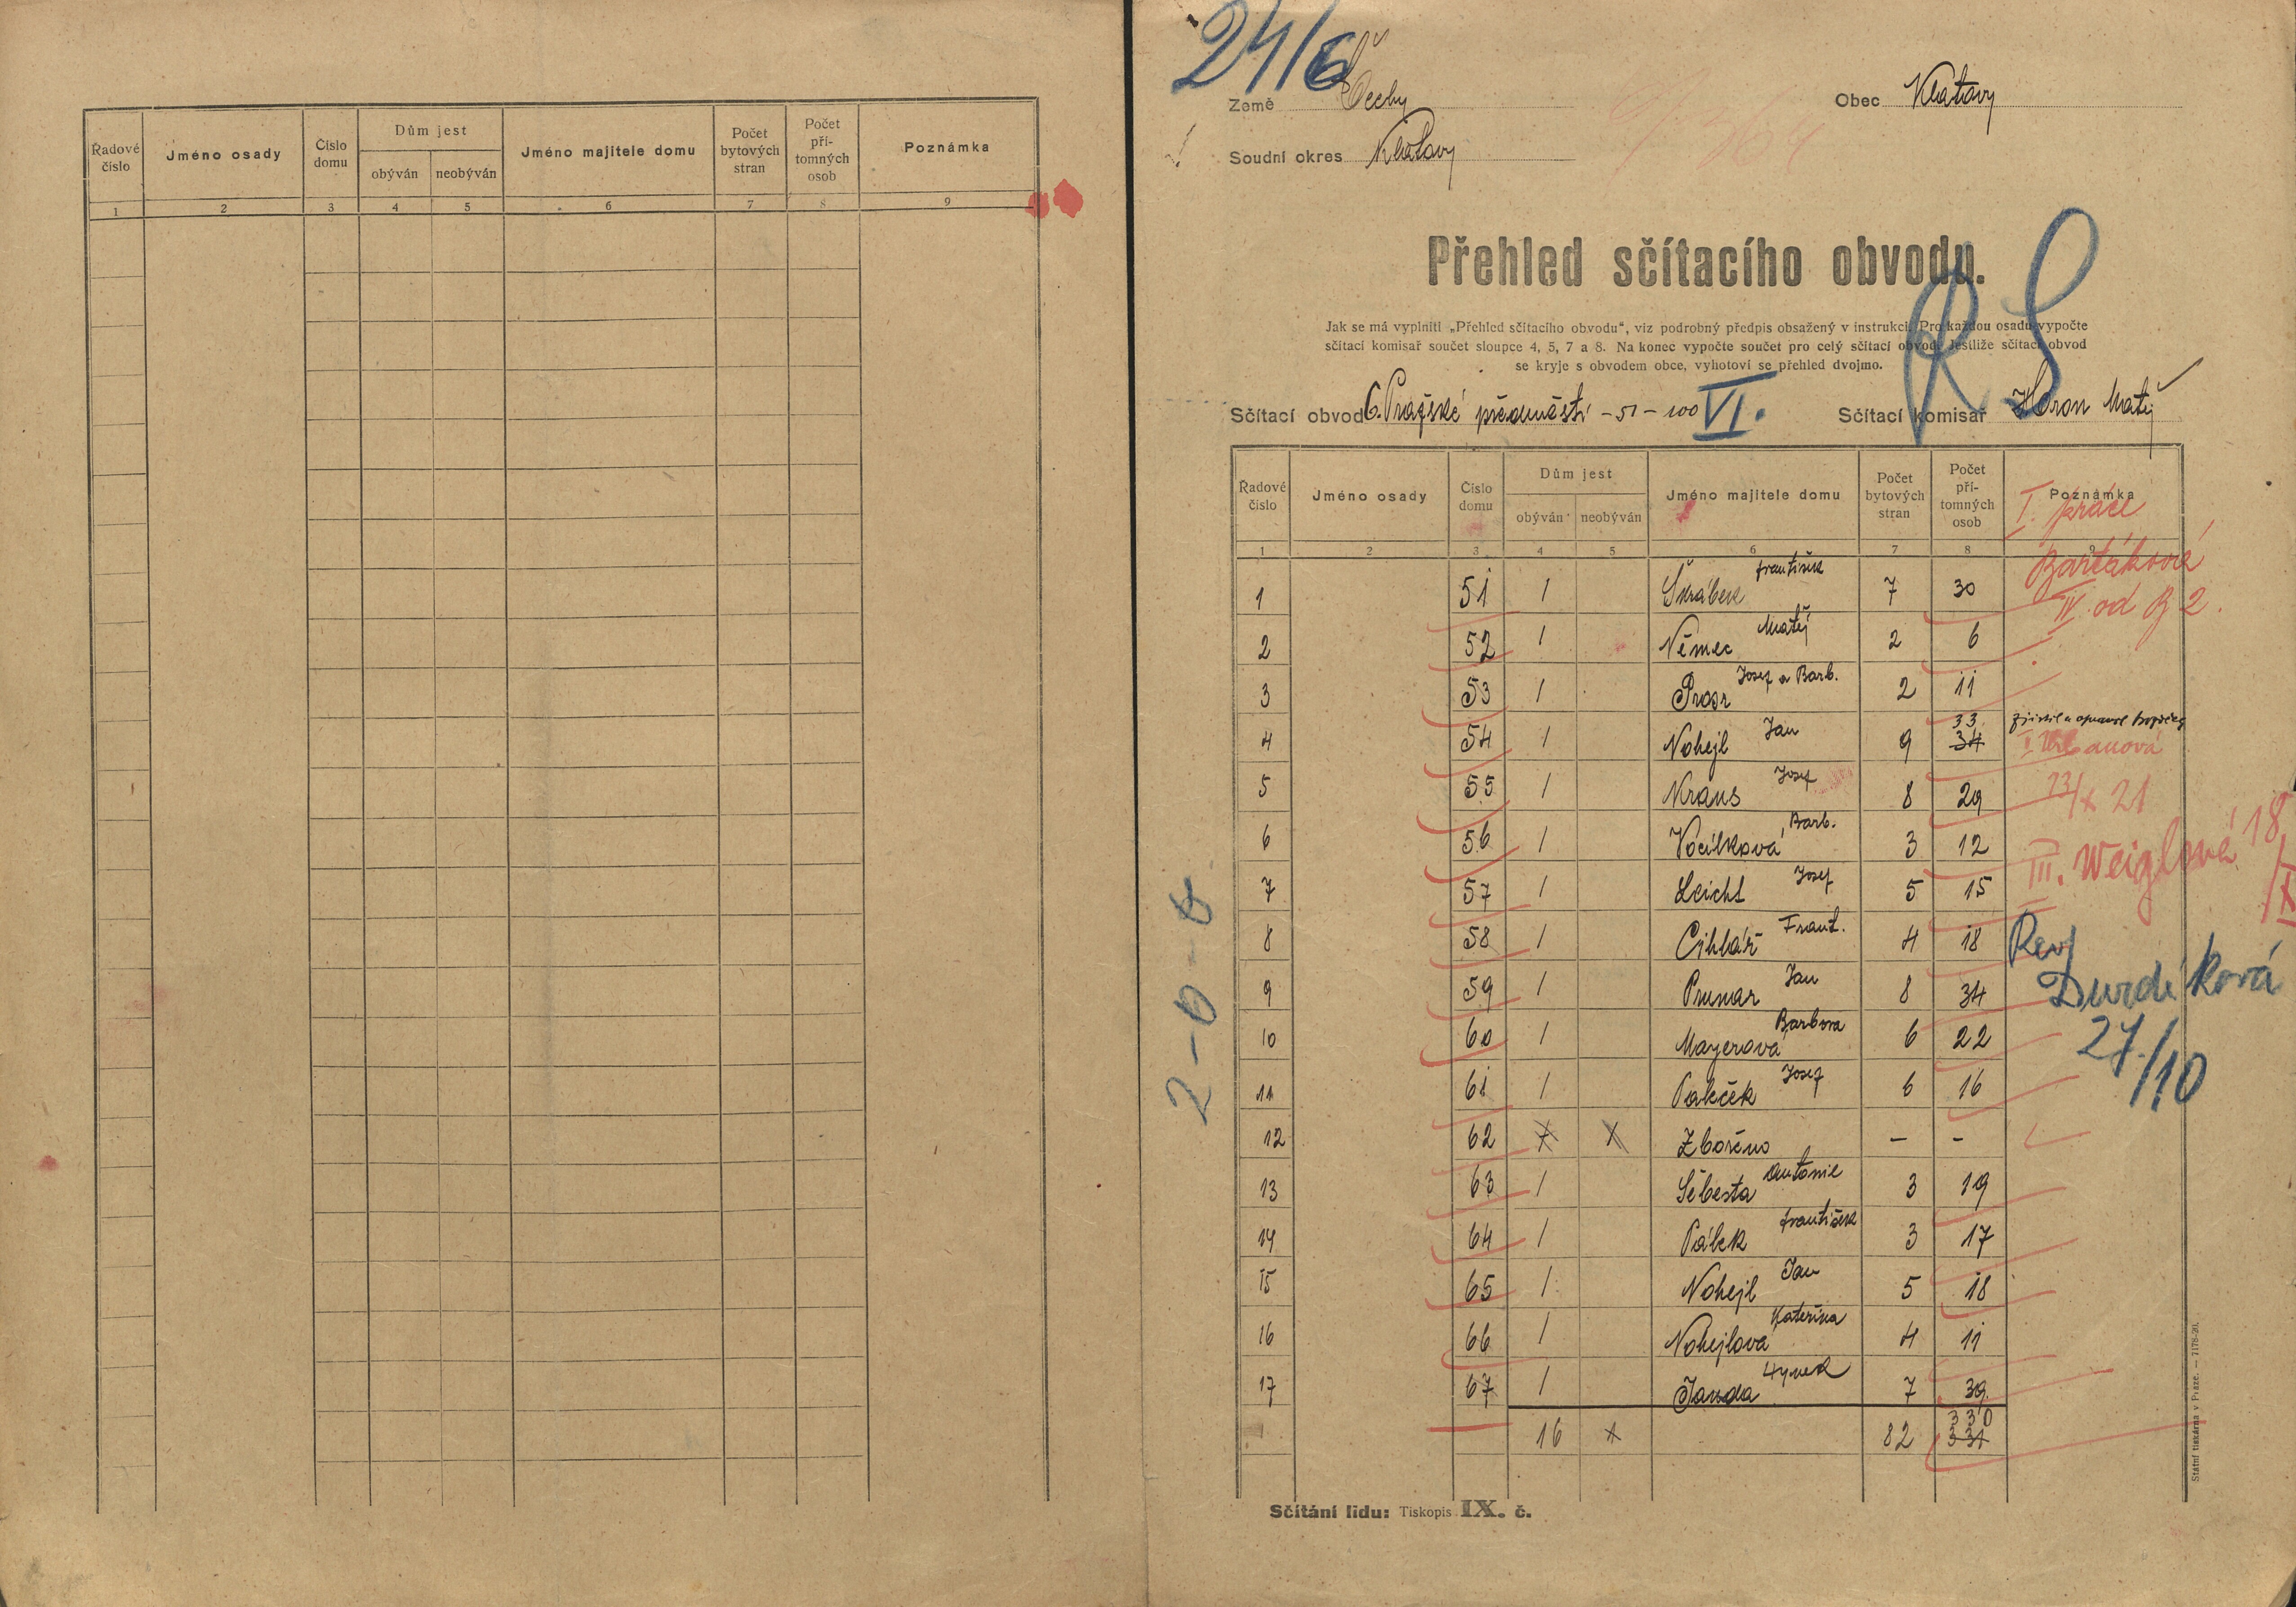 Řadové číslo
Jméno osady
Číslo domu
Dům jest
obýván
neobýván
Jméno majitele domu
Počet bytových stran
Počet pří-
tomných
osob
Poznámka
1 2 3 4 5 6 7 8 9
24/6
Země Čechy
Obec Klatovy
Soudní okres Klatovy
Přehled sčítacího obvodu.
R S
Jak se má vyplniti „Přehled sčítacího obvodu“, viz podrobný předpis obsažený v instrukci. Pro každou osadu vypočte
sčítací komisař součet sloupce 4, 5, 7 a 8. Na konec vypočte součet pro celý sčítací obvod. Jestliže sčítací obvod
se kryje s obvodem obce, vyhotoví se přehled dvojmo.
Sčítací obvod 6. Pražské předměstí - 51 - 100 VI. Sčítací komisař Matěj
Řadové číslo
Jméno osady
Číslo domu
Dům jest
obýván
neobýván
Jméno majitele domu
Počet bytových stran
Počet pří-
tomných
osob
Poznámka
I. práce
1 2 3 4 5 6 7 8 9
Bartáková
IV. od B 2.
1 51 1 Škrábek František 7 30
2 52 1 Němec Matěj 2 6
3 53 1 Josef a Barb. 2 11
4 54 1 Nohejl Jan 9 34 33
zjistil a opravil
Urbanová
5 55 1 Kraus Josef 8 29
23/X 21
6 56 1 Vocílková Barb. 3 12
III. Weiglová 18/IX
7 57 1 Leicht Josef 5 15
8 58 1 Cihlář Frant. 4 18
Rev
9 59 1 Prunar Jan 8 34
Durdíková
10 60 1 Mayerová Barbora 6 22
27/10
11 61 1 Josef 6 16
12 62 X X Zbořeno - -
13 63 1 Šebesta Antonie 3 19
14 64 1 Pálek František 3 17
15 65 1 Nohejl Jan 5 18
16 66 1 Nohejlová Kateřina 4 11
17 67 1 Janda Hynek 7 39
16 X 82 331 330
2-0-0
Sčítání lidu: Tiskopis IX. č.
Státní tiskárna v Praze. — 7178-20.